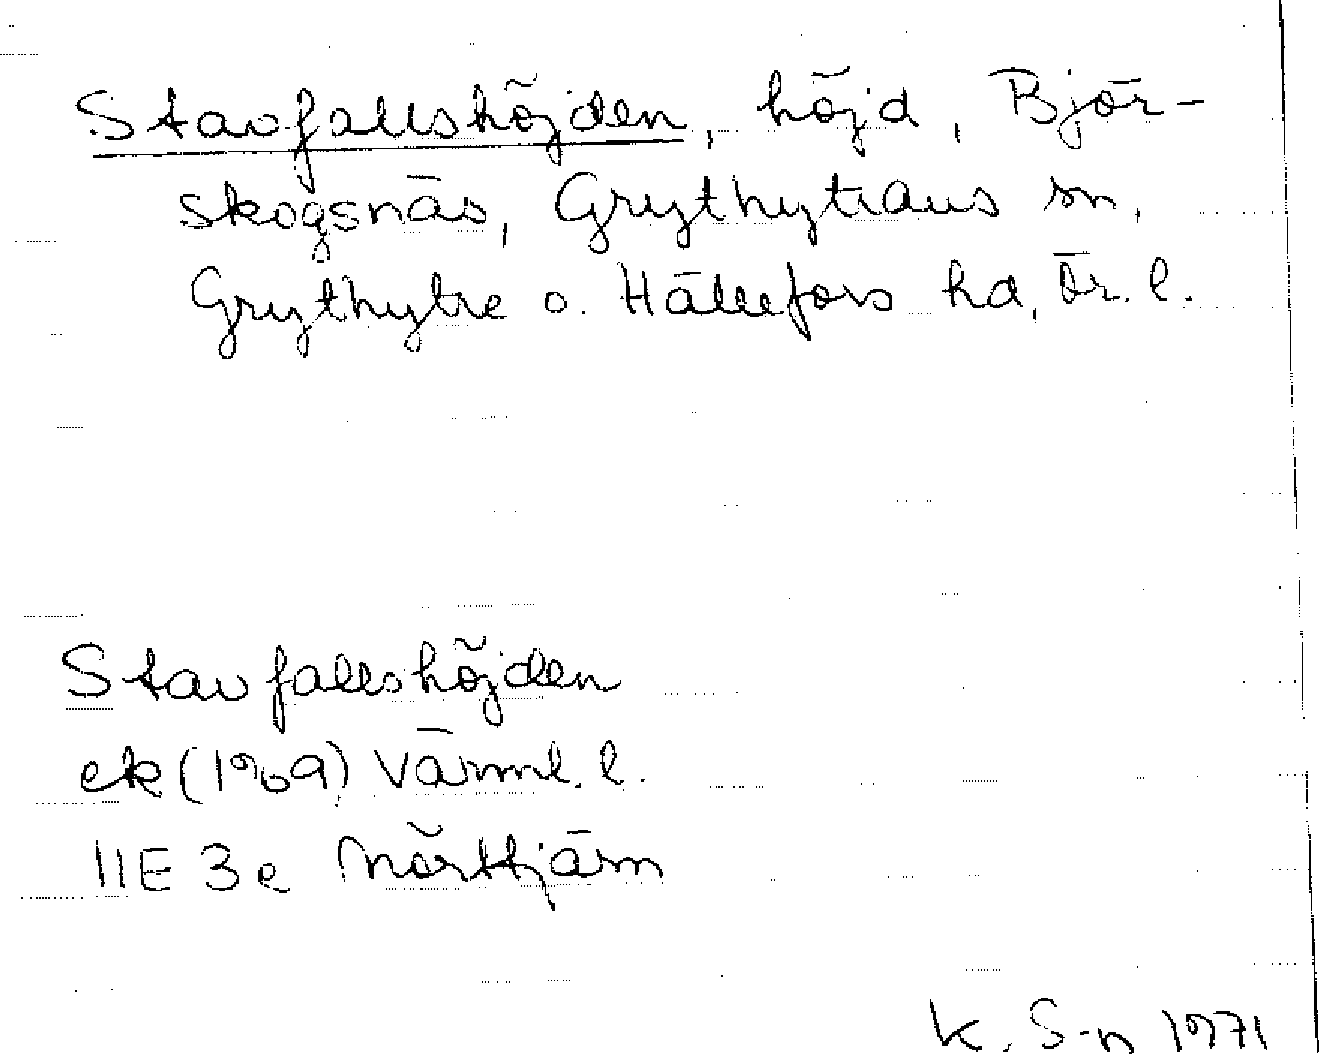 Stavfallshöjden, höjd, Björ-
skogsnäs, Grythyttans sn,
Grythytte o. Hällefors hd, Ör. l.
Stavfallshöjden
ek (1969) Värml. l.
11E 3e Mörttjärn
K. S-n 1971